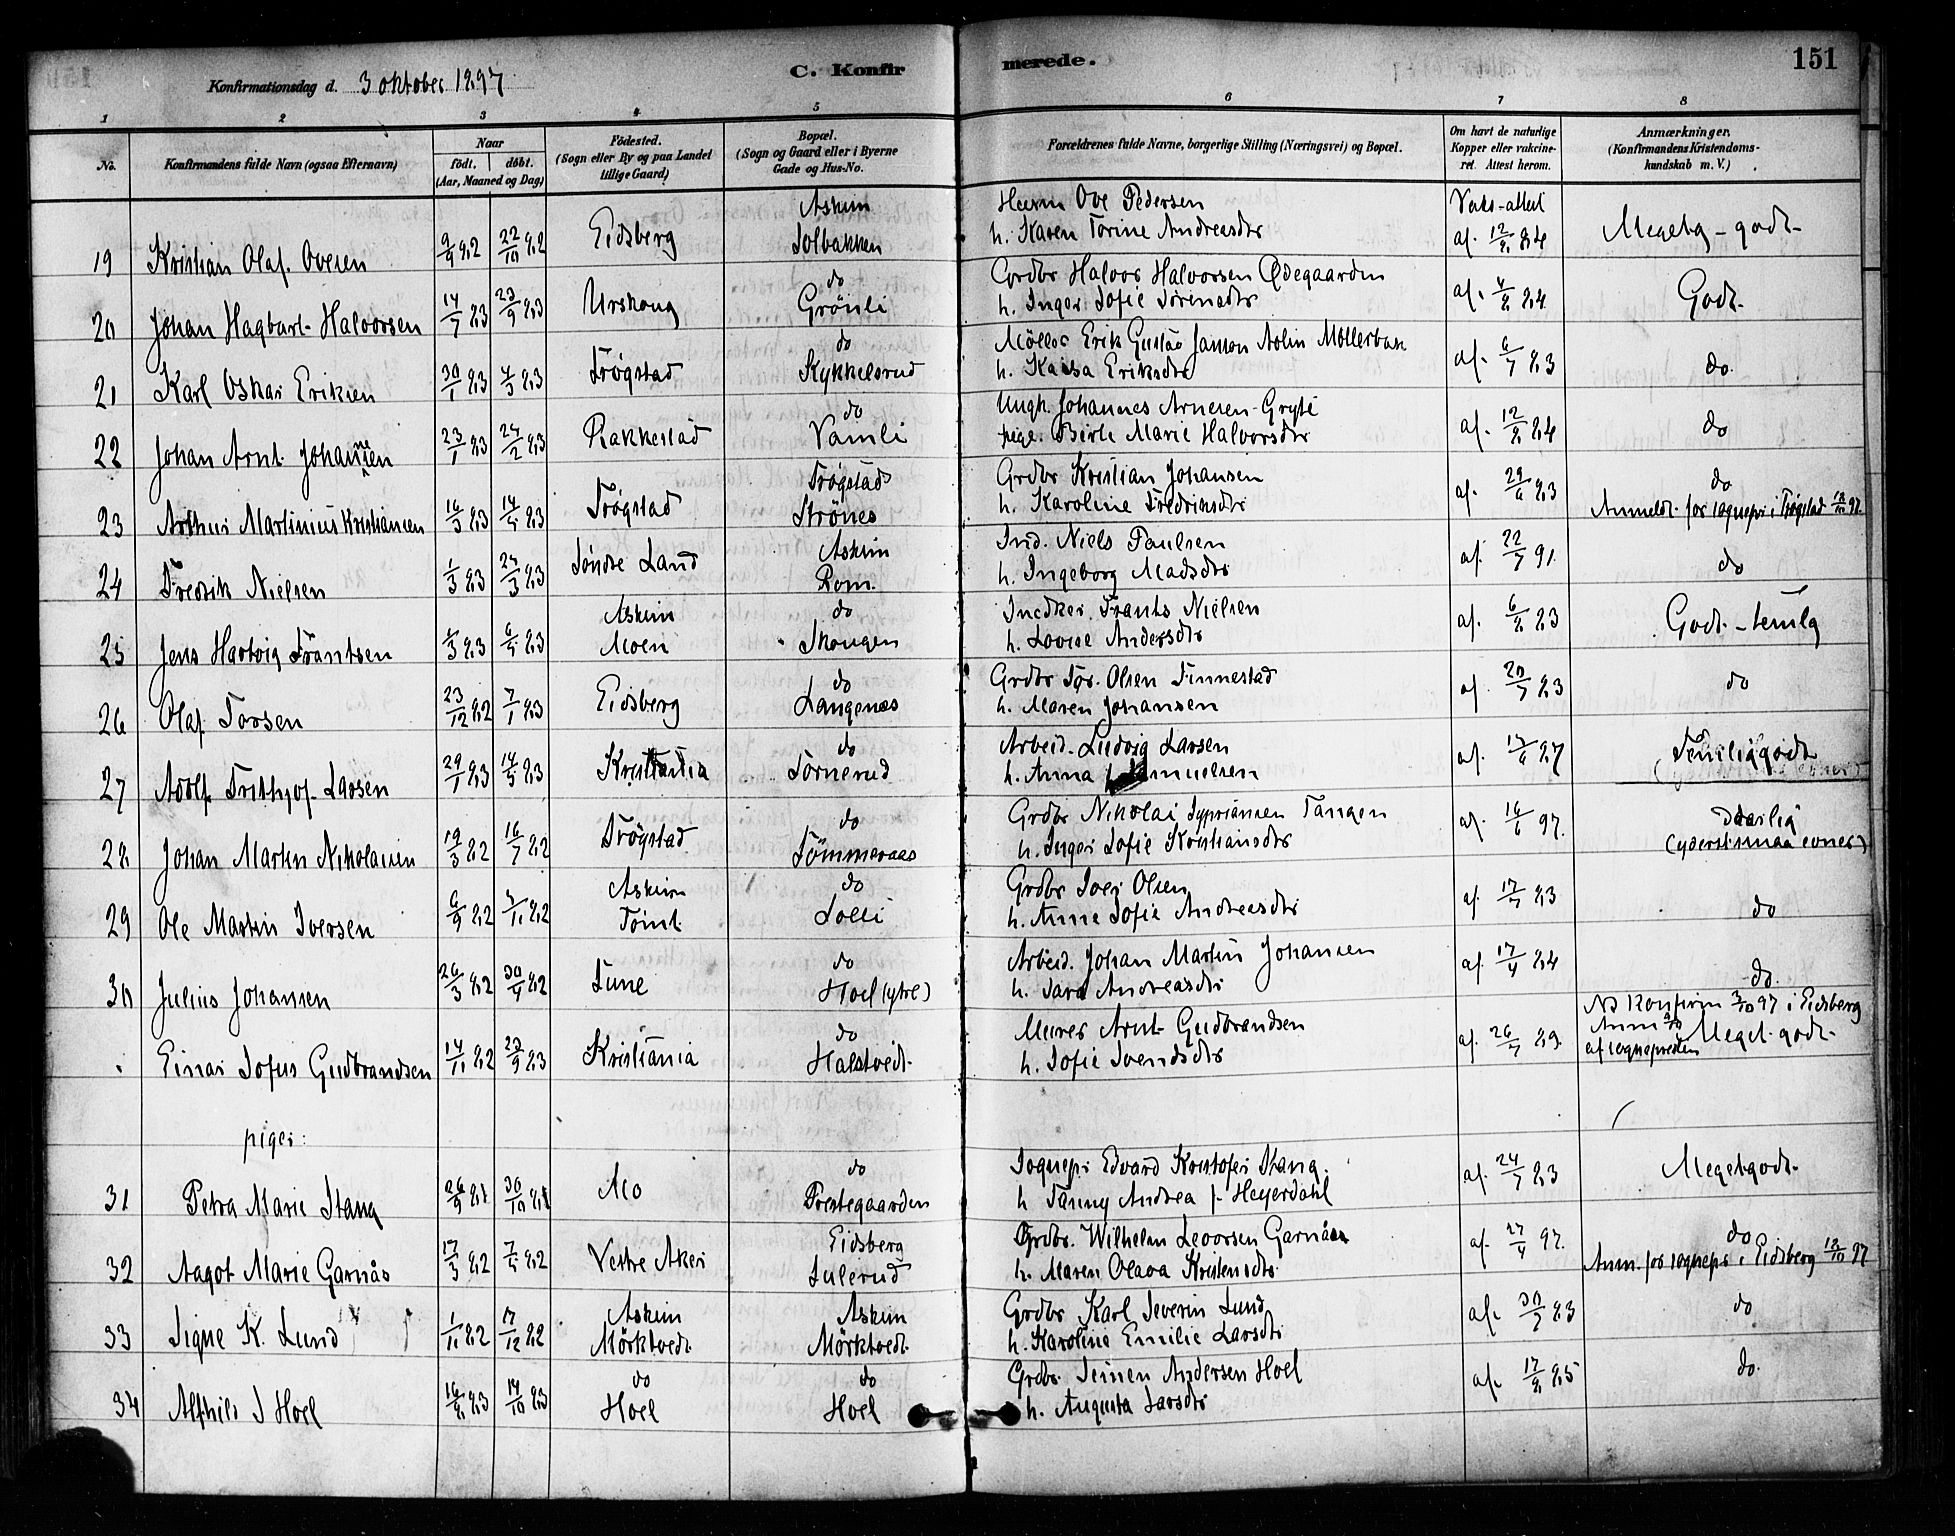 151
Konfirmationsdag d. 3 oktober 1897
C. Konfirmerede.
1 2 3 4 5 6 7 8
No.
Konfirmandens fulde Navn (ogsaa Efternavn)
Naar
født. døbt.
(Aar, Maaned og Dag)
Fødested.
(Sogn eller By og paa Landet
tillige Gaard)
Bopæl.
(Sogn og Gaard eller i Byerne
Gade og Hus-No.
Forældrenes fulde Navne, borgerlige Stilling (Næringsvei) og Bopæl.
Om havt de naturlige
Kopper eller vakcine-
ret. Attest herom.
Anmærkninger.
(Konfirmandens Kristendoms-
kundskab m. V.)
Askim Husm Ove Pedersen Vaks-attest
19 Kristian Olaf Ovesen 9/9 82 22/10 82 Eidsberg Solbakken h. Karen Torine Andreasdtr af 12/8 84 Megetg - godt
do Grdbr Halvor Halvorsen Ødegaarden
20 Johan Hagbart Halvorsen 14/7 83 23/9 83 Urskoug Grönli h. Inger Sofie Sörensdtr af 4/8 84 Godt
do Möller Erik Gustav Janson Nolin Möllerbak
21 Karl Oskar Eriksen 30/1 83 4/3 83 Trøgstad Kykkelsrud h. Kaisa Eriksdtr af 6/7 83 do
do Ungk. Johannes Arnesen Gryte
22 Johan Arnt Johannesen 23/1 83 25/2 83 Rakkestad Vamli pige Birte Marie Halvorsdtr af 12/8 84 do
Trøgstad Grdbr Kristian Johansen do
23 Arthur Martinius Kristiansen 16/3 83 14/5 83 Trøgstad Strönes h. Karoline Fredriksdtr af 29/6 83 Anmeldt for sognepr i Trøgstad 12/10 97.
Askim Ind. Niels Paulsen
24 Fredrik Nielsen 1/3 83 25/3 83 Söndre Land Rom h. Ingeborg Madsdtr af 22/7 91. do
Askim do Snedker Frants Nielsen
25 Jens Hartvig Frantsen 5/3 83 6/5 83 Moen Skougen h. Lovise Andersdtr af 6/8 83 Godt - temlg
do Grdbr Tor Olsen Finnestad
26 Olaf Torsen 23/12 82 7/1 83 Eidsberg Langenæs h. Maren Johansen af 20/7 83 do
do Arbeid. Ludvig Larsen
27 Adolf Frithjof Larsen 29/1 83 14/5 83 Kristiania Tornerud h. Anna Samuelsen af 17/6 87 Temlig godt
do Grdbr Nikolai Syprianen Tangen
28 Johan Martin Nikolaisen 19/3 82 16/7 82 Trøgstad Tömmeraas h. Inger Sofie Kristiansdtr af 16/6 97. daarlig (yderst smaa evner)
Askim do Grdbr Iver Olsen
29 Ole Martin Iversen 6/9 82 5/11 82 Tomt Solli h. Anne Sofie Andreasdtr af 17/7 83 do
do Arbeid. Johan Martin Johansen
30 Julius Johansen 26/3 82 30/4 82 Tune Hoel (ytre) h. Sara Andreasdtr af 17/4 84 do
do Murer Arnt Gudbrandsen NB Konfirm 3/10 97 i Eidsberg
Einar Sofus Gudbrandsen 14/11 82 23/9 83 Kristiania Halstvedt h. Sofie Svendsdtr af 26/7 89. Anm af sognepresten Meget godt
piger:
do Sognepr Edvard Kristofer Stang
31 Petra Marie Stang 26/9 81 30/10 81 Mo Prestegaarden h Fanny Andrea f. Heyerdahl af 24/7 83 Meget godt
Eidsberg Grdbr. Wilhelm Leoorsen Garnaas do
32 Aagot Marie Garnås 17/3 82 7/5 82 Vestre Aker Sulerud h. Maren Olava Kristensdtr af 27/4 97. Anm. for sognepr i Eidsberg 12/10 97
Askim Askim Grdbr Karl Severin Lund
33 Signe K. Lund 1/11 82 17/12 82 Mörktvedt Mörktvedt h. Karoline Emilie Larsdtr af 30/7 83 do
do do Grdbr. Simen Andersen Hoel
34 Alfhild J Hoel 16/8 83 14/10 83 Hoel Hoel h. Augusta Larsdtr af 17/8 85 do